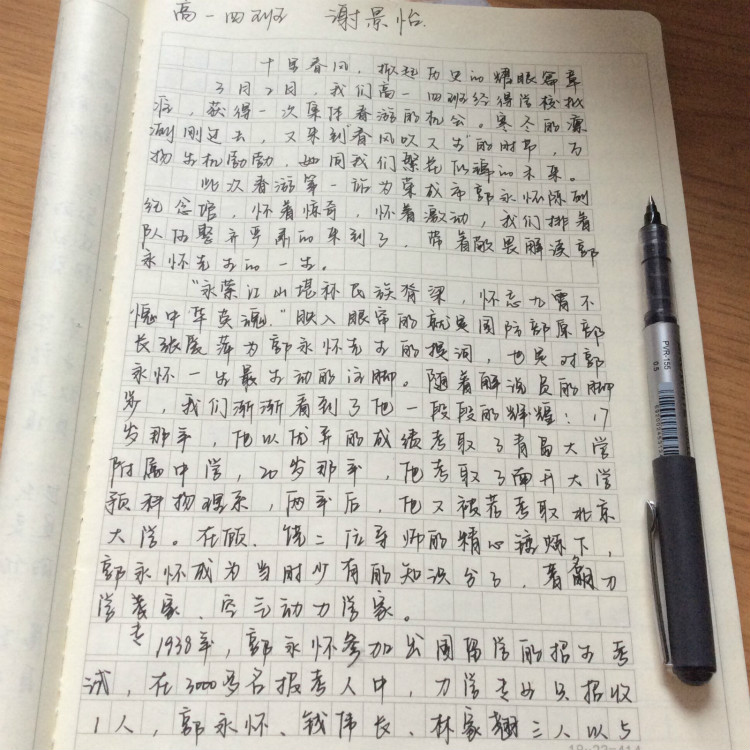 高一四班 谢景怡
十里春风,掀起历史的耀眼篇章
3月2日,我们高一四班经得学校批
准,获得一次集体春游的机会。寒冬的凛
冽刚过去,又来到"春风吹又生"的时节,万
物生机勃勃,如同我们繁花似锦的未来。
此次春游第一站为荣成市郭永怀陈列
纪念馆,怀着惊奇,怀着激动,我们排着
队伍整齐严肃的来到了,带着敬畏解读郭
永怀先生的一生。
"永荣江山堪称民族脊梁,怀志九霄不
愧中华英魂。"映入眼帘的就是国防部原部
长张爱萍为郭永怀先生的提词,也是对郭
永怀一生最生动的注脚。随着解说员的脚
步,我们渐渐看到了他一段段的辉煌:17
岁那年,他以优异的成绩考取了青岛大学
附属中学,20岁那年,他考取了南开大学
预科物理系,两年后,他又被若考取北京
大学。在顾、饶二位导师的精心锤炼下,
郭永怀成为当时少有的知识分子,着名力
学专家、空气动力学家。
1938年,郭永怀参加出国留学的招生考
试,在3000多名报考人中,力学专业只招收
1人,郭永怀、钱伟长、林家翘三人以5
PVR-155
0.5